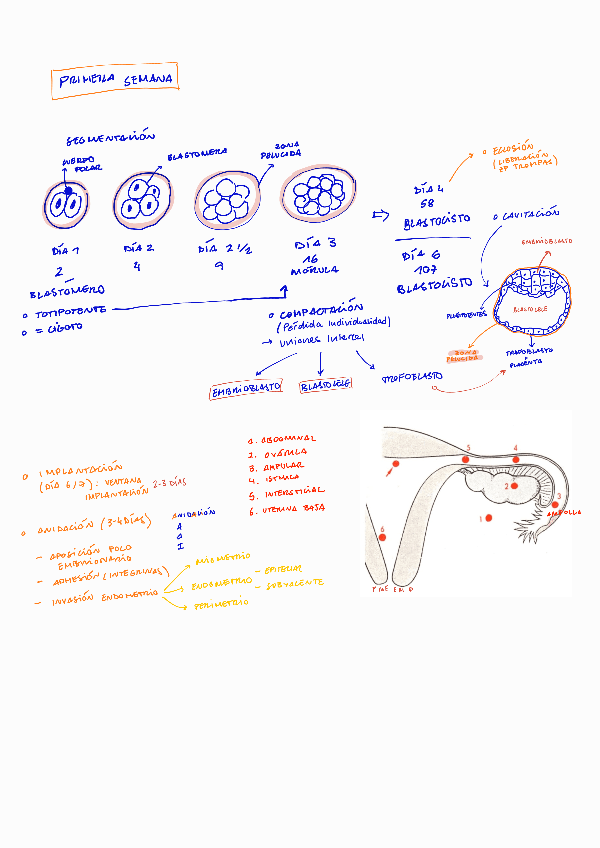 PRIMERA SEMANA
SEGMENTACIÓN
CUERPO
POLAR
BLASTOMERA
ZONA
PELUCIDA
DÍA 1
2
DÍA 2
4
DÍA 2 1/2
9
DÍA 3
16
MÓRULA
BLASTÓMERO
o TOTIPOTENTE
o = CIGOTO
o COMPACTACIÓN
(Pérdida individualidad)
→ Uniones Intercel
EMBRIOBLASTO
BLASTOCELE
TROFOBLASTO
DÍA 4
58
BLASTOCISTO
DÍA 6
107
BLASTOCISTO
o ECLOSIÓN
(LIBERACIÓN
ZP TROMPAS)
o CAVITACIÓN
EMBRIOBLASTO
BLASTOCELE
ZONA
PELUCIDA
TROFOBLASTO
PLACENTA
o IMPLANTACIÓN
(DÍA 6/7): VENTANA
IMPLANTACIÓN 2-3 DÍAS
o ANIDACIÓN (3-4 DÍAS)
- APOSICIÓN POLO
EMBRIONARIO
- ADHESIÓN (INTEGRINAS)
- INVASIÓN ENDOMETRIO
ANIDACIÓN
A
A
I
MIOMETRIO
ENDOMETRIO
PERIMETRIO
- EPITELIAL
- SUBYACENTE
1. ABDOMINAL
2. OVÁRICA
3. AMPULAR
4. ISTMICA
5. INTERSTICIAL
6. UTERINA BAJA
5
4
2
3
AMPOLLA
1
6
P M E E M P